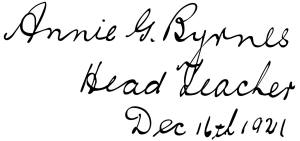 Annie G. Byrnes
Head Teacher
Dec 16th 1921